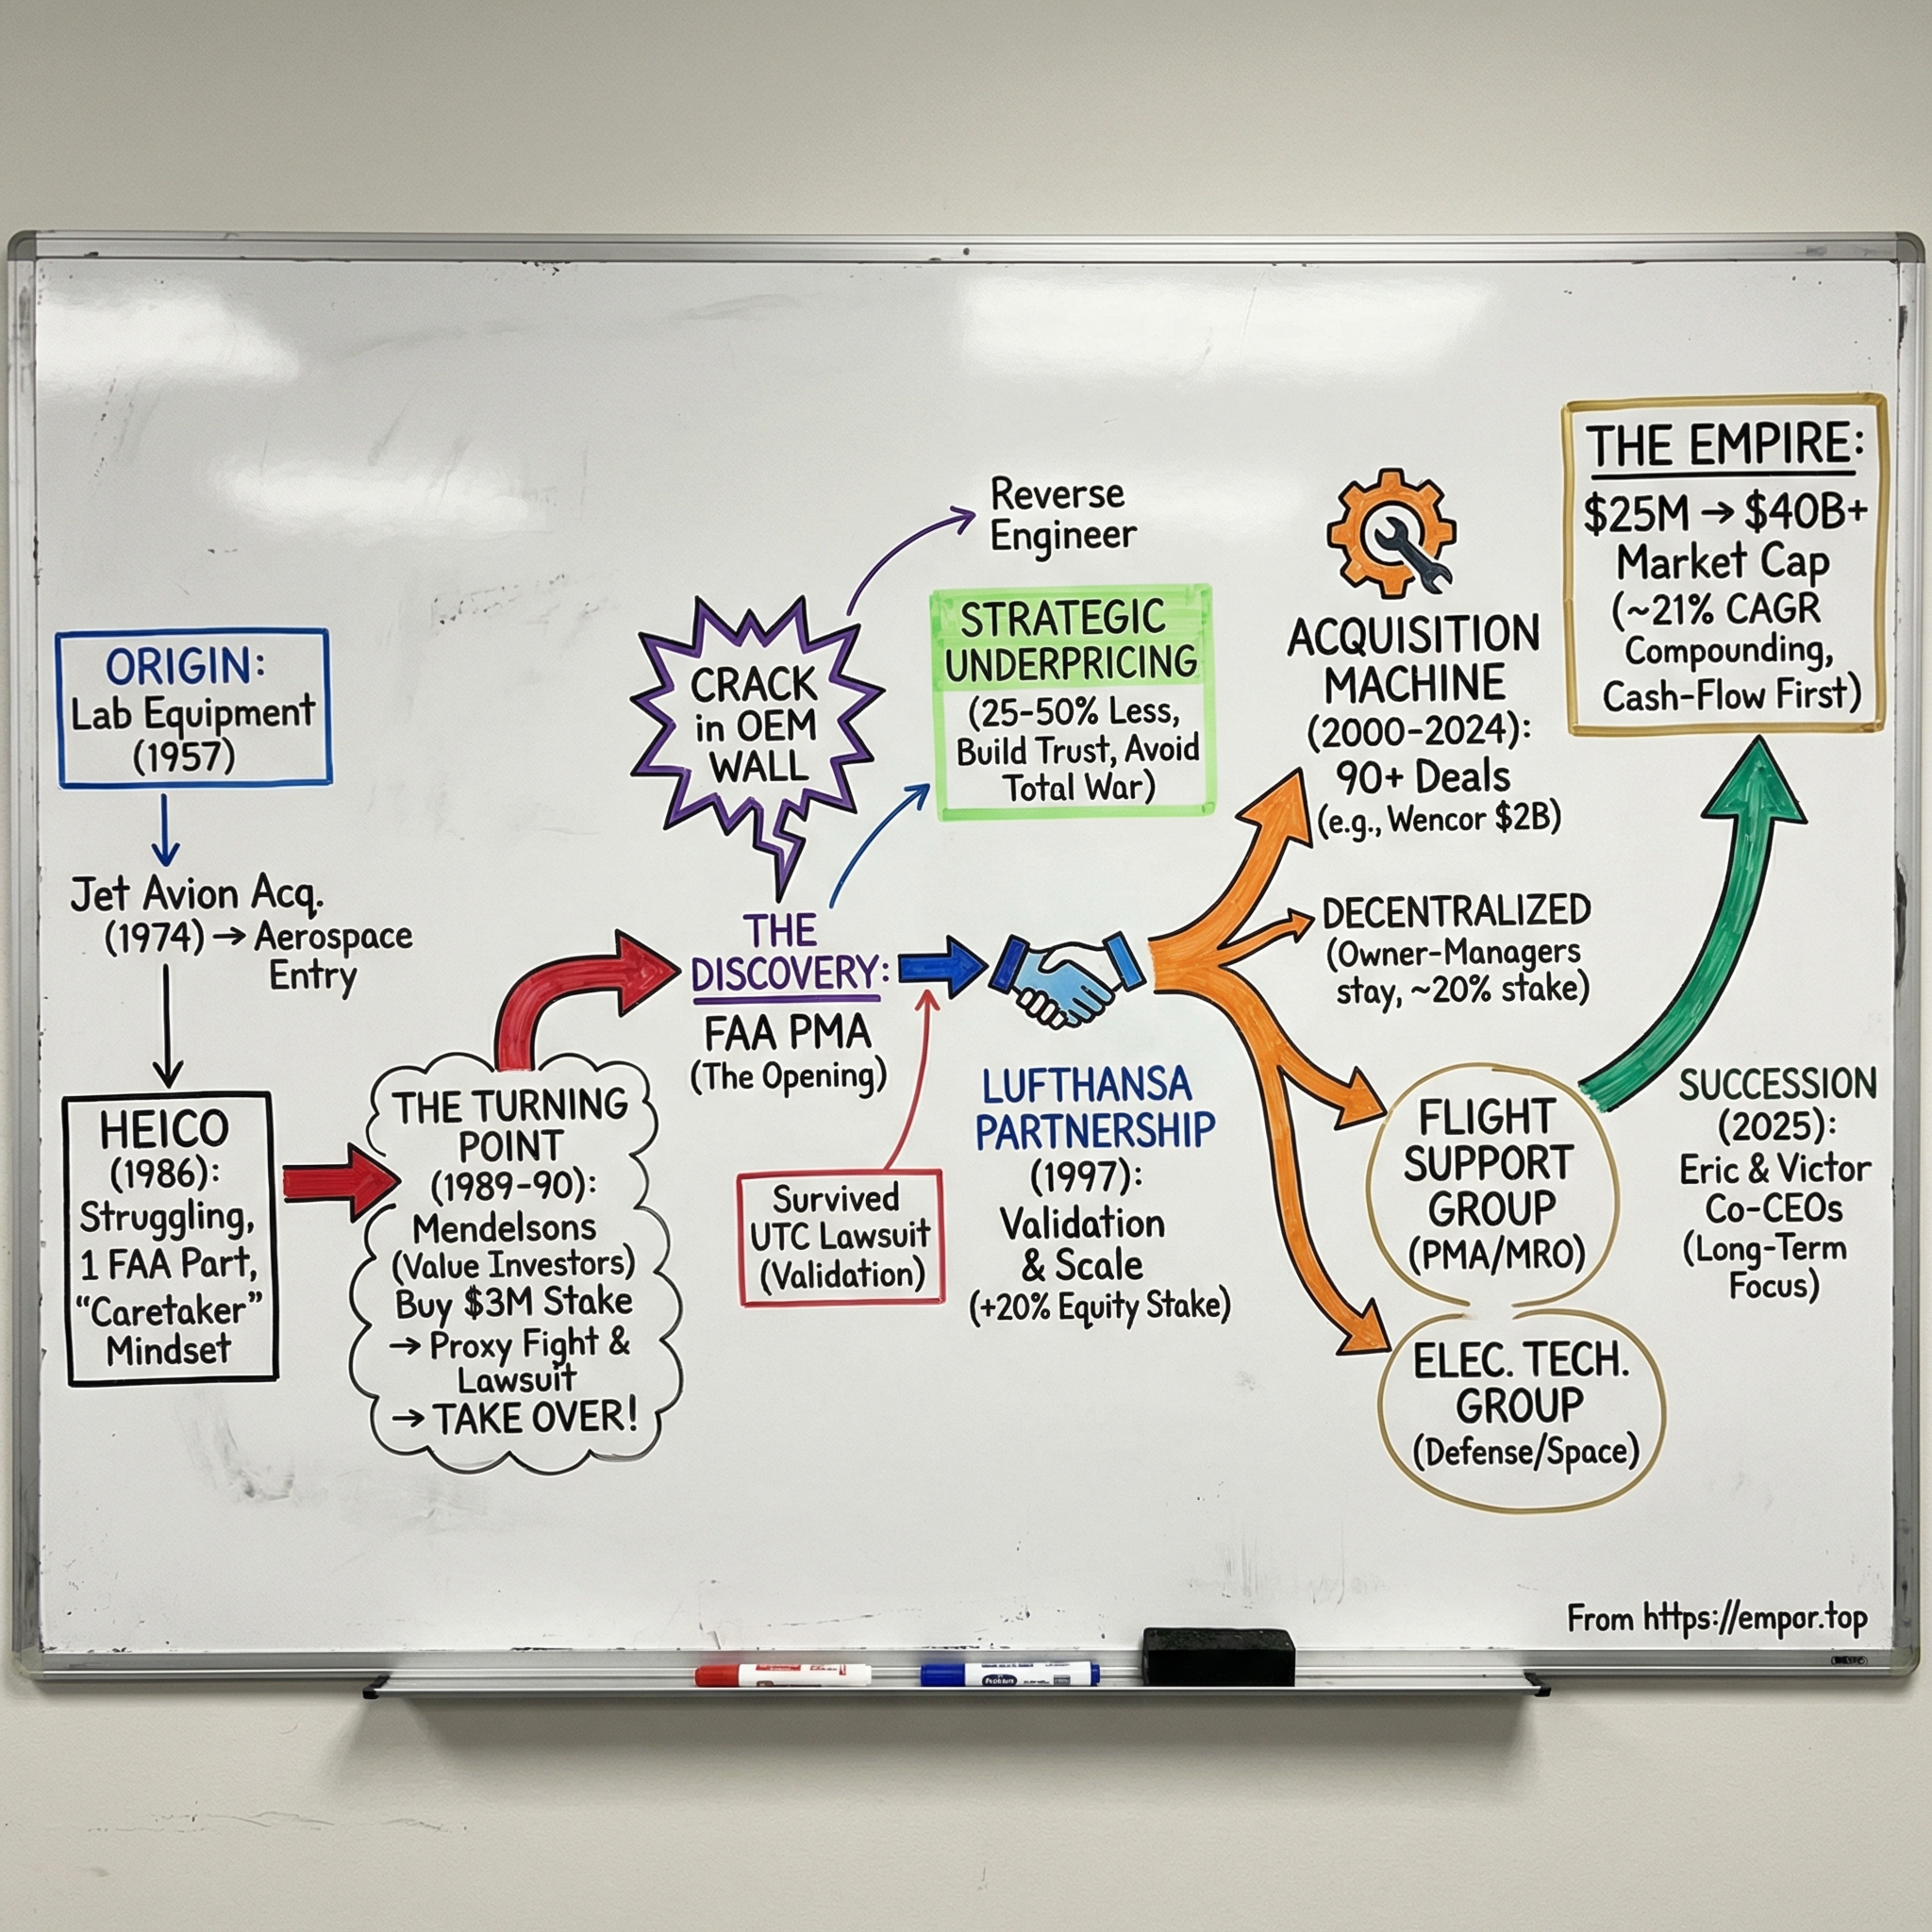 ORIGIN:
Lab Equipment
(1957)
Jet Avion Acq.
(1974) → Aerospace
Entry
HEICO
(1986):
Struggling,
1 FAA Part,
“Caretaker”
Mindset
THE TURNING
POINT
(1989-90):
Mendelsons
(Value Investors)
Buy $3M Stake
→ Proxy Fight &
Lawsuit
→ TAKE OVER!
CRACK
in OEM
WALL
THE
DISCOVERY:
FAA PMA
(The Opening)
Reverse
Engineer
STRATEGIC
UNDERPRICING
(25-50% Less,
Build Trust, Avoid
Total War)
Survived
UTC Lawsuit
(Validation)
LUFTHANSA
PARTNERSHIP
(1997):
Validation
& Scale
(+20% Equity Stake)
ACQUISITION
MACHINE
(2000-2024):
90+ Deals
(e.g., Wencor $2B)
DECENTRALIZED
(Owner-Managers
stay, ~20% stake)
FLIGHT
SUPPORT
GROUP
(PMA/MRO)
ELEC. TECH.
GROUP
(Defense/Space)
THE EMPIRE:
$25M → $40B+
Market Cap
(~21% CAGR
Compounding,
Cash-Flow First)
SUCCESSION
(2025):
Eric & Victor
Co-CEOs
(Long-Term
Focus)
From https://empor.top